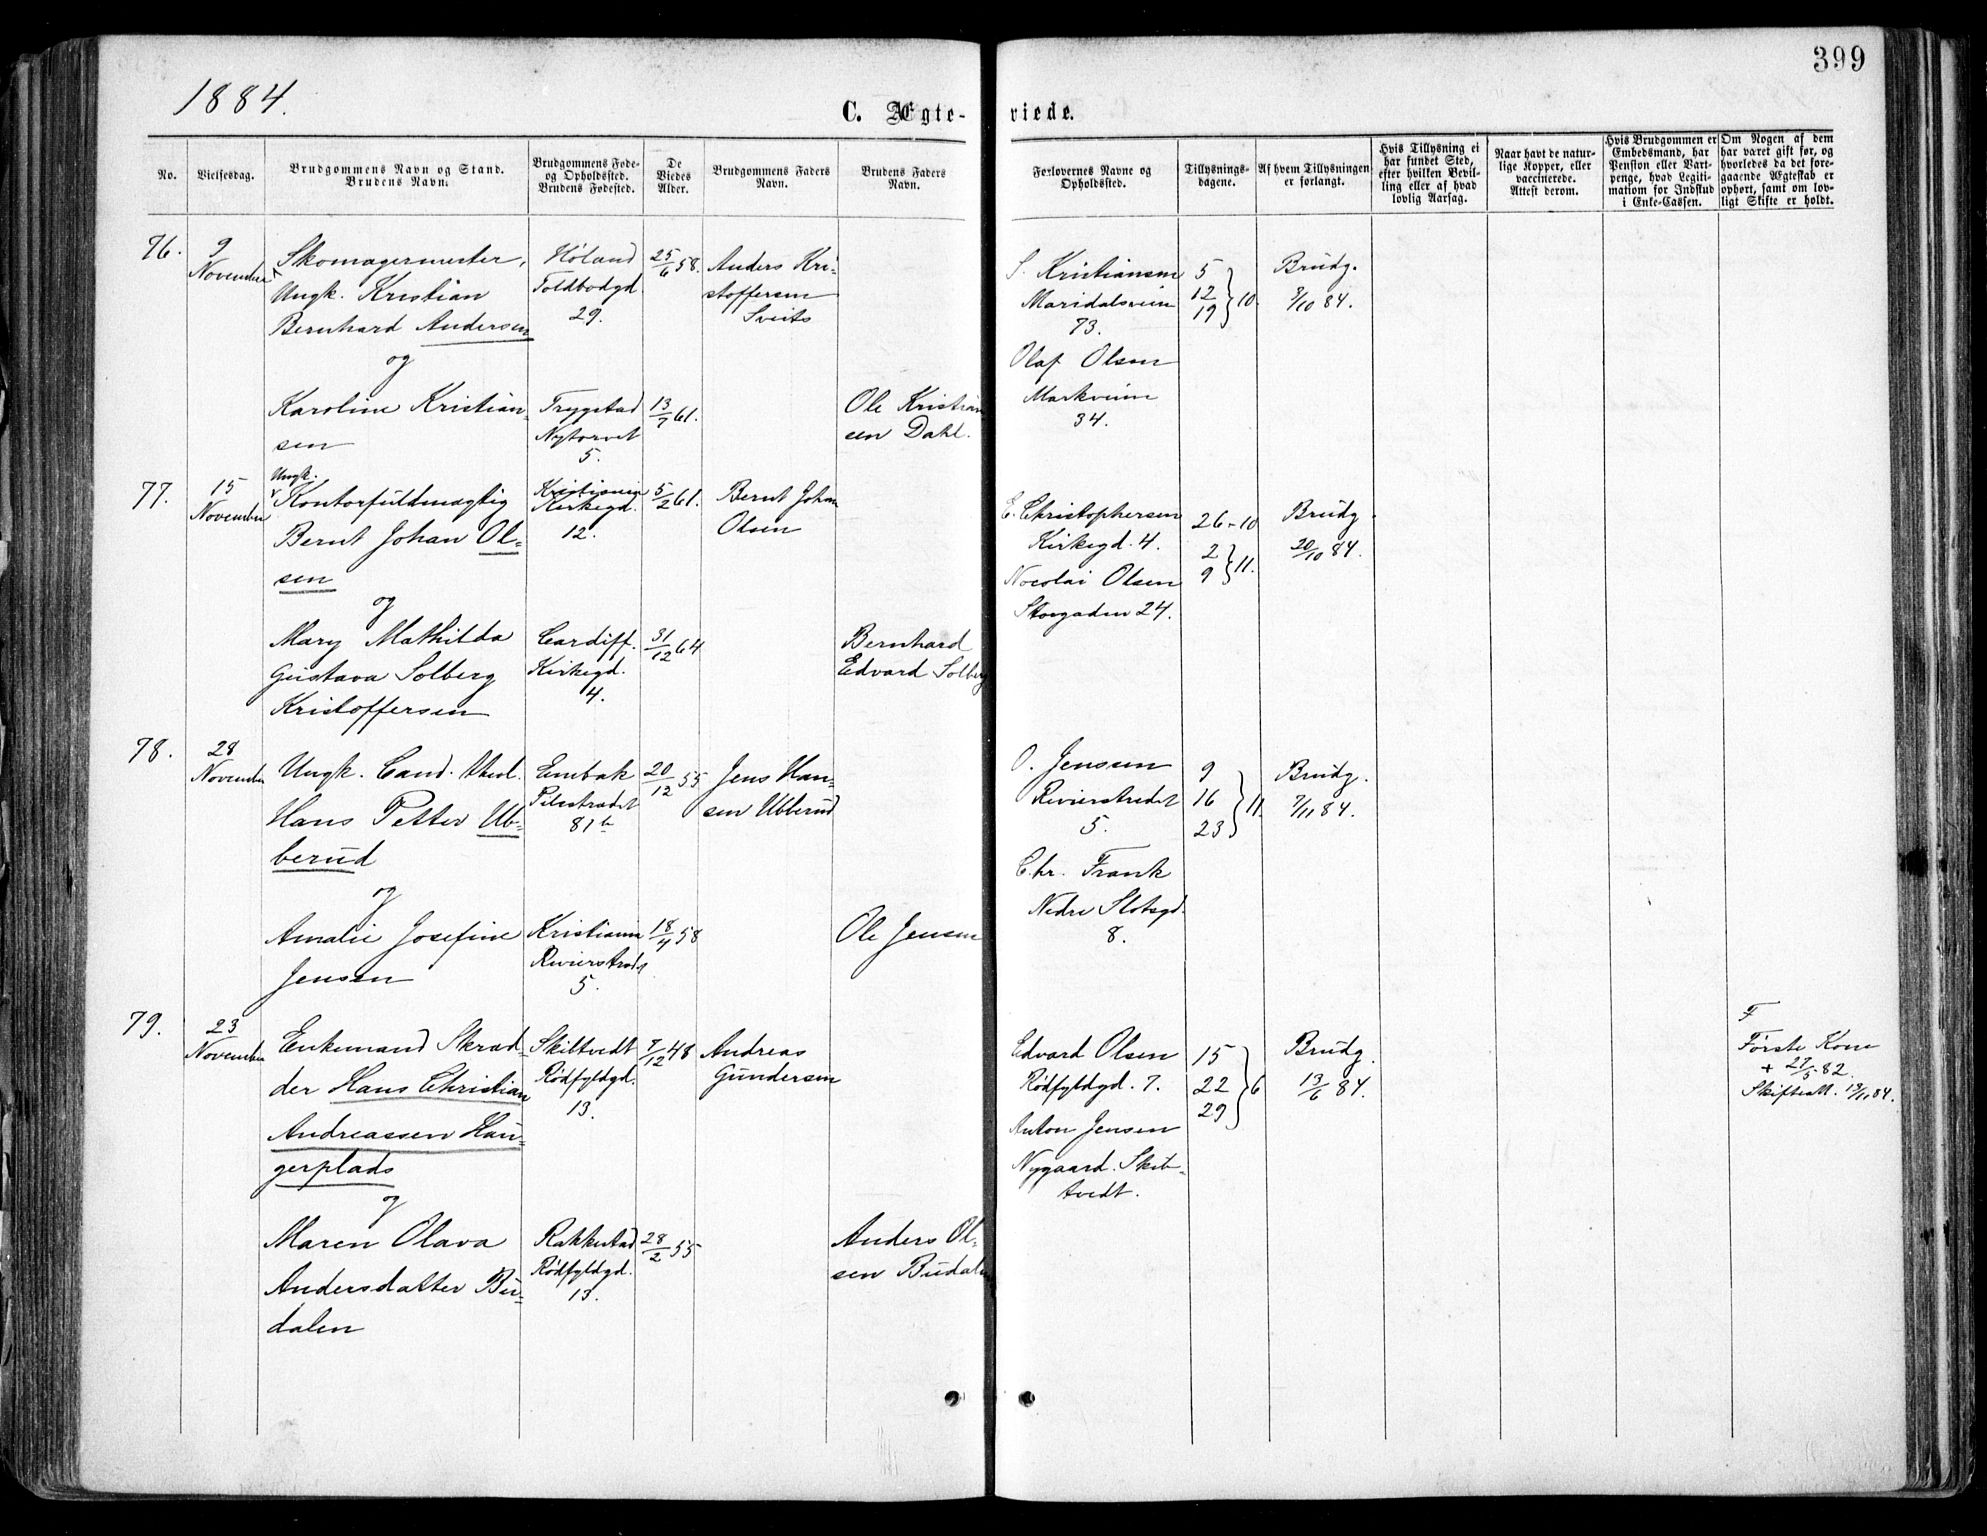 399
1884.
C. Ægte-
viede.
No.
Vielsesdag.
Brudgommens Navn og Stand.
Brudens Navn.
Brudgommens Føde-
og Opholdssted.
Brudens Fødested.
De
Viedes
Alder.
Brudgommens Faders
Navn.
Brudens Faders
Navn.
Forlovernes Navne og
Opholdssted.
Tillysnings-
dagene.
Af hvem Tillysningen
er forlangt.
Hvis Tillysning ei
har fundet Sted,
efter hvilken Bevil-
ling eller af hvad
lovlig Aarsag.
Naar havt de natur-
lige Kopper, eller
vaccinerede.
Attest derom.
Hvis Brudgommen er
Embedsmand, har
Pension eller Vart-
penge, hvad Legiti-
mation for Indskud
i Enke-Cassen.
Om Nogen af dem
har været gift før, og
hvorledes da det fore-
gaaende Ægteskab er
ophørt, samt om lov-
ligt Skifte er holdt.
76.
9
November
Skomagermester,
Ungk. Kristian
Bernhard Andersen
og
Karoline Kristian-
sen
Høland
Toldbodgd
29.
Trygstad
Nytorvet
5.
25/6 58.
13/7 61.
Anders Kri-
stoffersen
Sveits
Ole Kristian
sen Dahl.
S. Kristiansen
Maridalsveien
73.
Olaf Olsen
Markveien
34.
5
12
19 } 10.
Brudg.
9/10 84.
77.
15
November
Ungk.
Kontorfuldmægtig
Bernt Johan Ol-
sen
og
Mary Mathilda
Gustava Solberg
Kristoffersen
Kristiania
Kirkegd.
12.
Cardiff.
Kirkegd.
4.
5/2 61.
31/12 64
Bernt Johan
Olsen
Bernhard
Edvard Solberg
E. Christophersen
Kirkegd. 4.
Nocolai Olsen
Storgaden 24.
26-10
2
9 } 11.
Brudg.
20/10 84.
78.
28
November
Ungk. Cand. theol.
Hans Petter Ub-
berud
og
Amalie Josefine
Jensen
Eenbak
Pilestrædet
81b
Kristiania
Revierstræd
5.
20/12 55
18/4 58
Jens Han-
sen Ubberud
Ole Jensen
O. Jensen
Revierstrædet
5.
Chr. Frank
Nedre Slotsgd.
8.
9
16
23 } 11.
Brudg.
7/11 84.
79.
23
November
Enkemand Skræd-
der Hans Christian
Andreassen Hau-
gerplads
og
Maren Olava
Andersdatter Bu-
dalen
Skibtvedt
Rødfyldgd.
13.
Rakkestad
Rødfyldgd.
13.
7/12 48
28/2 55
Andreas
Gundersen
Anders Ol-
sen Budalen
Edvard Olsen
Rødfyldgd. 7.
Anton Jensen
Nygaard. Skib-
tvedt.
15
22
29 } 6
Brudg.
13/6 84.
F
Første Kone
+ 27/5 82.
Skifteatt. 13/11 84.